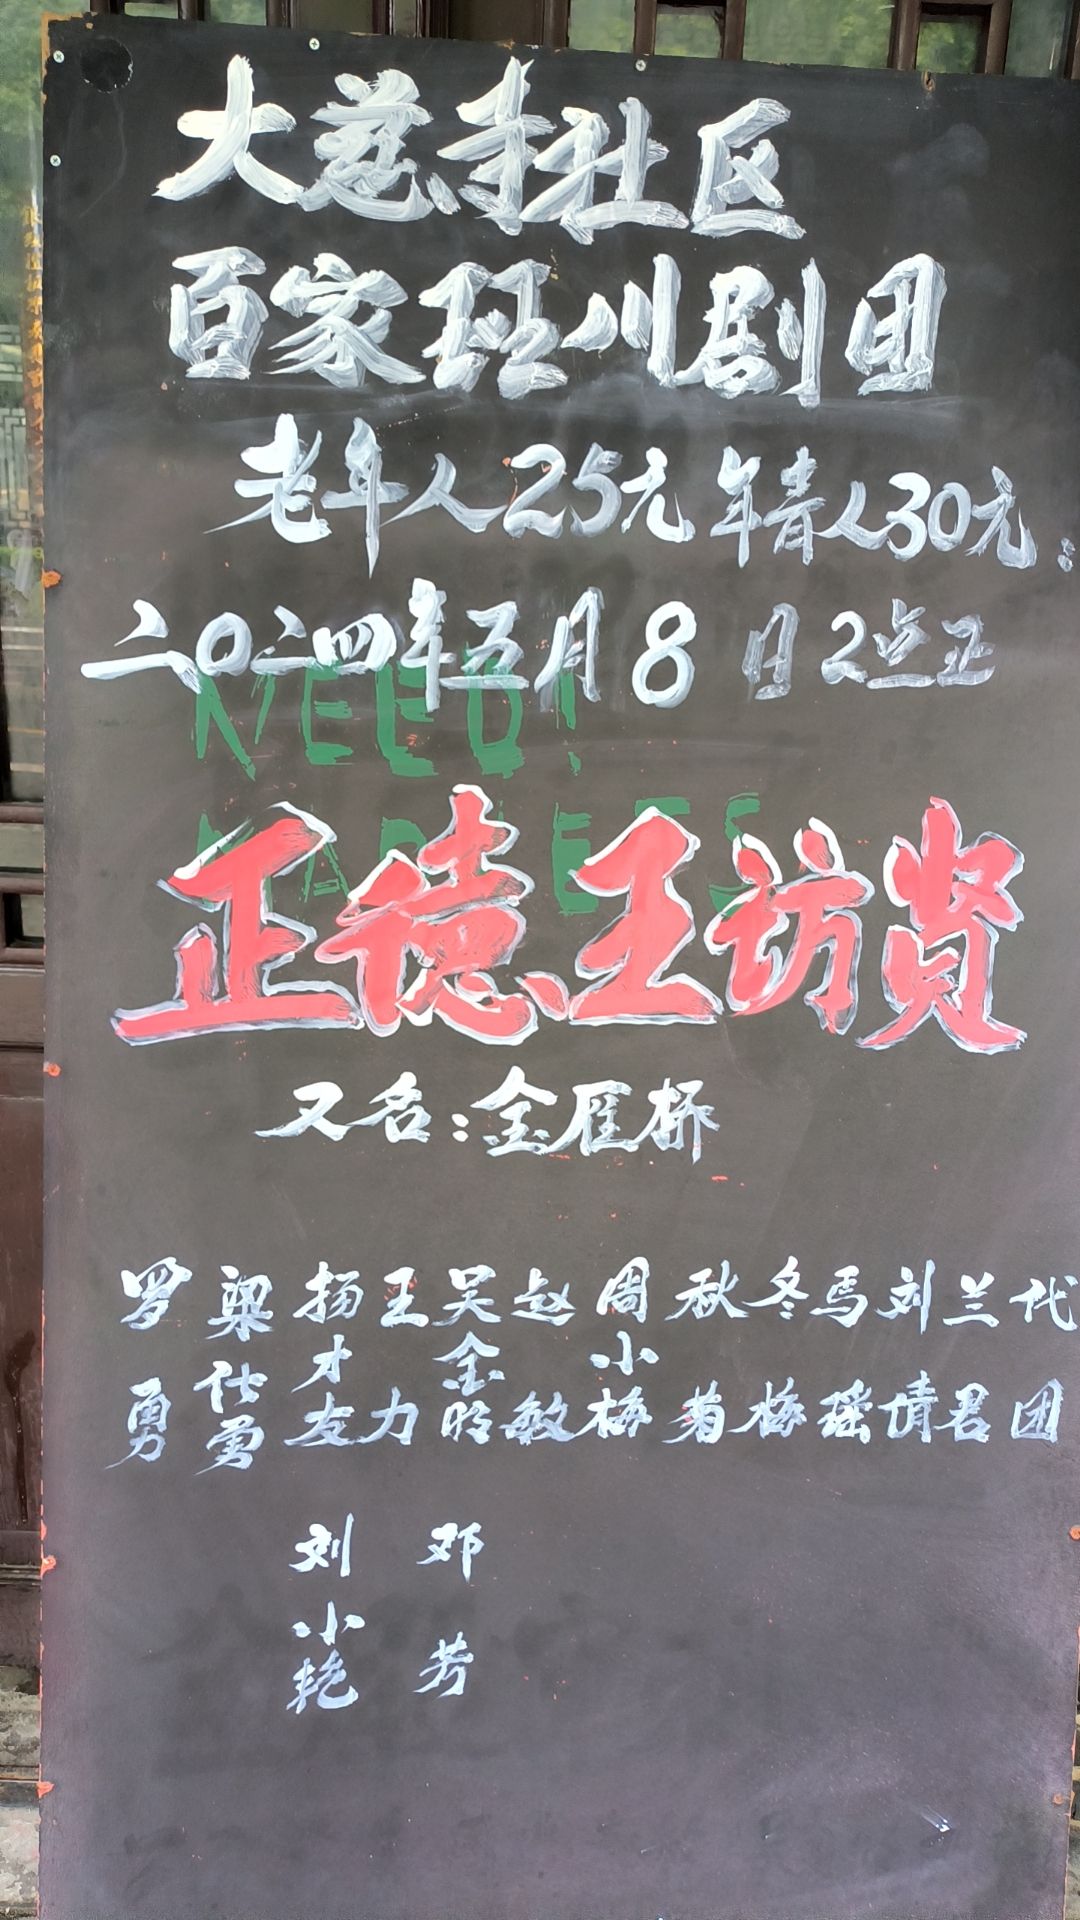 大慈寺社区
百家班川剧团
老年人25元 年青人30元:
二0二四年五月8日2点正
NEED!
正德王访贤
又名:金雁桥
罗勇
梁仕勇
扬才友
王力
吴金明
赵敏
周小梅
秋菊
冬梅
马瑶
刘情
兰君
代团
刘小艳
邓芳